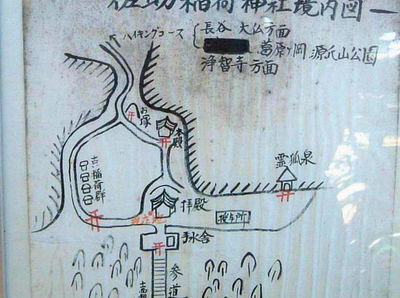 佐助稲荷神社境内図
ハイキングコース
長谷 大仏方面
葛原ヶ岡 源氏山公園
浄智寺方面
お塚
本殿
古い稲荷群
霊狐泉
拝殿
授与所
手水舎
参道